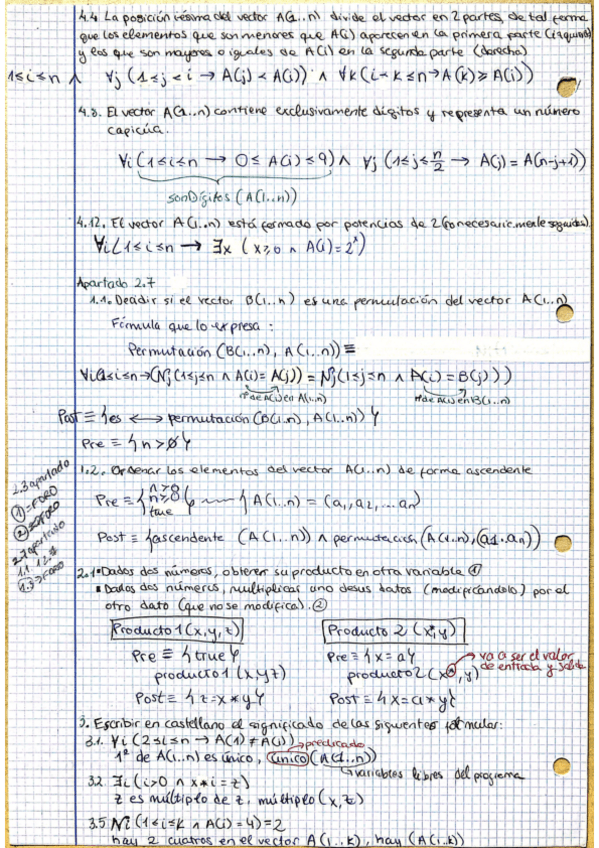 4.4 La posición iésima del vector A(1..n) divide el vector en 2 partes, de tal forma
que los elementos que son menores que A(i) aparecen en la primera parte (izquierda)
y los que son mayores o iguales de A(i) en la segunda parte (derecha)
1≤i≤n ∧ ∀j (1≤j<i → A(j) < A(i)) ∧ ∀k(i<k≤n → A(k) ≥ A(i))
4.8. El vector A(1..n) contiene exclusivamente dígitos y representa un número
capicúa.
∀i (1≤i≤n → 0≤ A(i) ≤9) ∧ ∀j (1≤j≤n/2 → A(j) = A(n-j+1))
sonDígitos (A(1..n))
4.12. El vector A(1..n) está formado por potencias de 2 (no necesariamente seguidas).
∀i (1≤i≤n → ∃x (x≥0 ∧ A(i) = 2^x)
Apartado 2.7
1.1. Decidir si el vector B(1..n) es una permutación del vector A(1..n)
Fórmula que lo expresa :
Permutación (B(1..n), A(1..n)) ≡
∀i(1≤i≤n → (Nj(1≤j≤n ∧ A(i) = A(j)) = Nj(1≤j≤n ∧ A(i) = B(j))))
nº de A(i) en A(1..n) nº de A(i) en B(1..n)
Post ≡ {es ↔ permutación (B(1..n), A(1..n))}
Pre ≡ {n>0}
1.2. Ordenar los elementos del vector A(1..n) de forma ascendente
2.3 apartado
① = FORO
② = FORO
2.7 apartado
1.1. 1.2.
1.3 → FORO
n>0
Pre ≡ {n≥0} {A(1..n) = (a1, a2, ... an)
true
Post ≡ {ascendente (A(1..n)) ∧ permutación (A(1..n), (a1..an))
2.1 • Dados dos números, obtener su producto en otra variable ①
• Dados dos números, multiplicar uno de sus datos (modificándolo) por el
otro dato (que no se modifica). ②
Producto 1 (x, y, z) Producto 2 (x*, y)
Pre ≡ {true} Pre ≡ {x = a}
va a ser el valor
de entrada y salida
producto1 (x, y, z) producto2 (x*, y)
Post ≡ {z = x * y} Post ≡ {x = a * y}
3. Escribir en castellano el significado de las siguientes fórmulas:
3.1. ∀i (2≤i≤n → A(1) ≠ A(i))
predicado
1º de A(1..n) es único, único (A(1..n))
variables libres del programa
3.2 ∃i (i>0 ∧ x*i = z)
z es múltiplo de z, múltiplo (x, z)
3.5 Ni (1≤i≤k ∧ A(i) = 4) = 2
hay 2 cuatros en el vector A(1..k), hay (A(1..k))